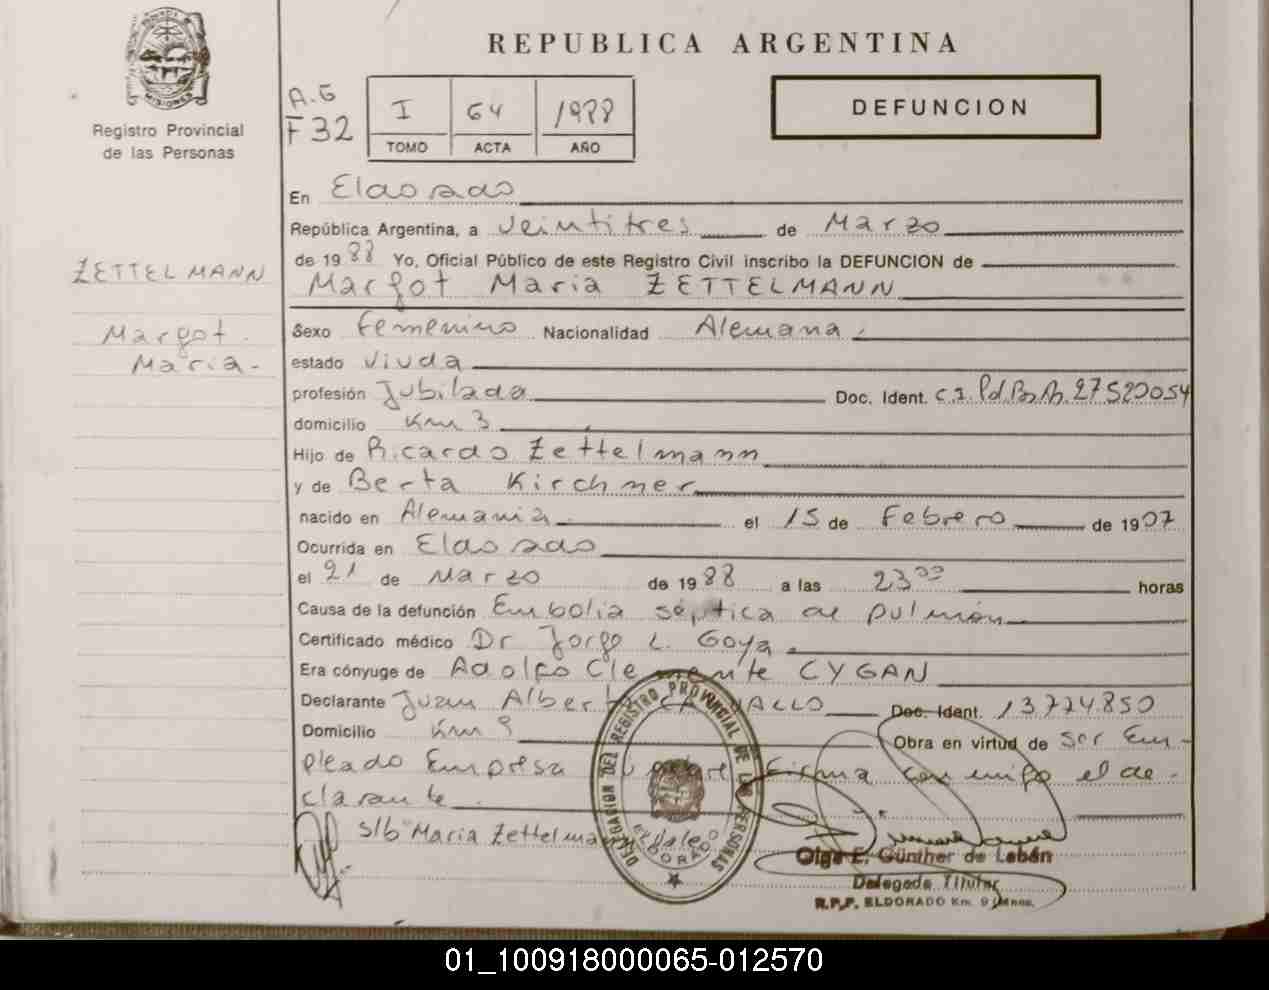 REPUBLICA ARGENTINA
MISIONES
Registro Provincial
de las Personas
A.G
F 32
I 64 1988
TOMO ACTA AÑO
DEFUNCION
En Eldorado
República Argentina, a veintitres de Marzo
de 1988 Yo, Oficial Público de este Registro Civil inscribo la DEFUNCION de
ZETTELMANN
Margot Maria ZETTELMANN
Margot
Maria-
Sexo Femenino Nacionalidad Alemana
estado Viuda
profesión Jubilada Doc. Ident. C.I. Pd.Bs.As. 27520054
domicilio Km 3
Hijo de Ricardo Zettelmann
y de Berta Kirchner
nacido en Alemania el 15 de Febrero de 1907
Ocurrida en Eldorado
el 21 de Marzo de 1988 a las 23 00 horas
Causa de la defunción Embolia séptica de pulmón
Certificado médico Dr Jorge L. Goya
Era cónyuge de Adolfo Clemente CYGAN
Declarante Juan Alberto Doc. Ident. 13.724.850
Domicilio Km 9 Obra en virtud de ser Em-
pleado Empresa firma conmigo el de-
clarante
s/b Maria Zettelmann Vale
DELEGACION DEL REGISTRO PROVINCIAL DE LAS PERSONAS
ELDORADO
Olga E. Günther de Lebán
Delegada Titular
R.P.P. ELDORADO Km. 9 Mnes.
01_100918000065-012570